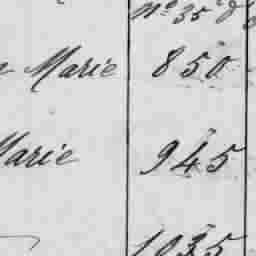 No 35
Marie 850
Marie 945
1035